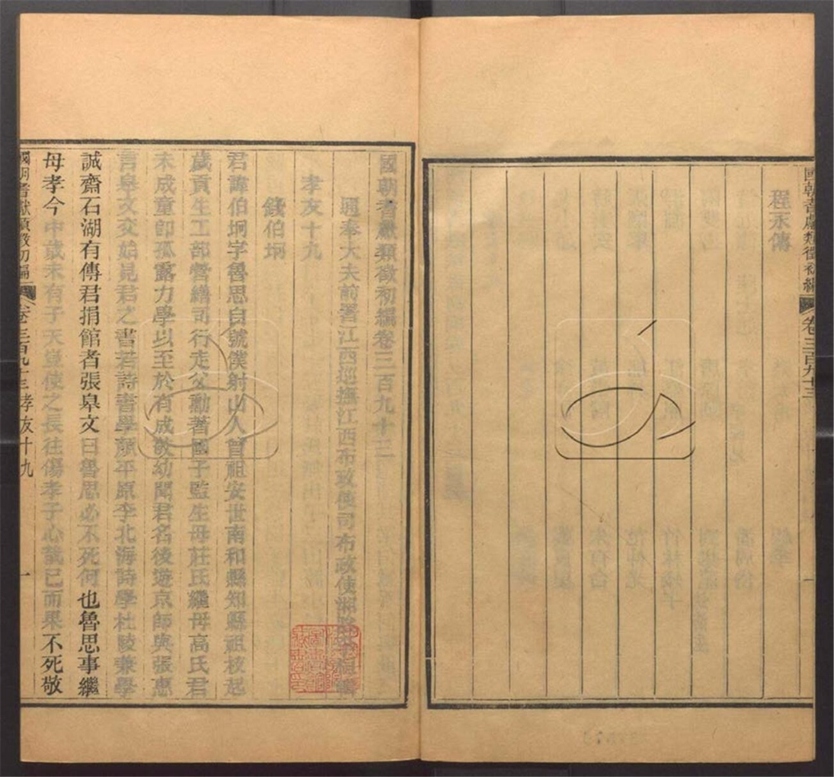 國朝耆獻類徵初編 卷三百九十三
程永傳
國朝耆獻類徵初編卷三百九十三
通奉大夫前署江西巡撫江西布政使司布政使湘陰李桓輯
孝友十九
錢伯坰
君諱伯坰字魯思自號僕射山人曾祖安世南和縣知縣祖枝起
歲貢生工部營繕司行走父勷著國子監生母莊氏繼母高氏君
未成童即孤露力學以至於有成敬幼聞君名後遊京師與張惠
言皋文交始見君之書若詩書學顏平原李北海詩學杜陵兼學
誠齋石湖有傳君捐館者張皋文曰魯思必不死何也魯思事繼
母孝今中歲未有子天豈使之長往傷孝子心哉已而果不死敬
國朝耆獻類徵初編 卷三百九十三 孝友十九 一